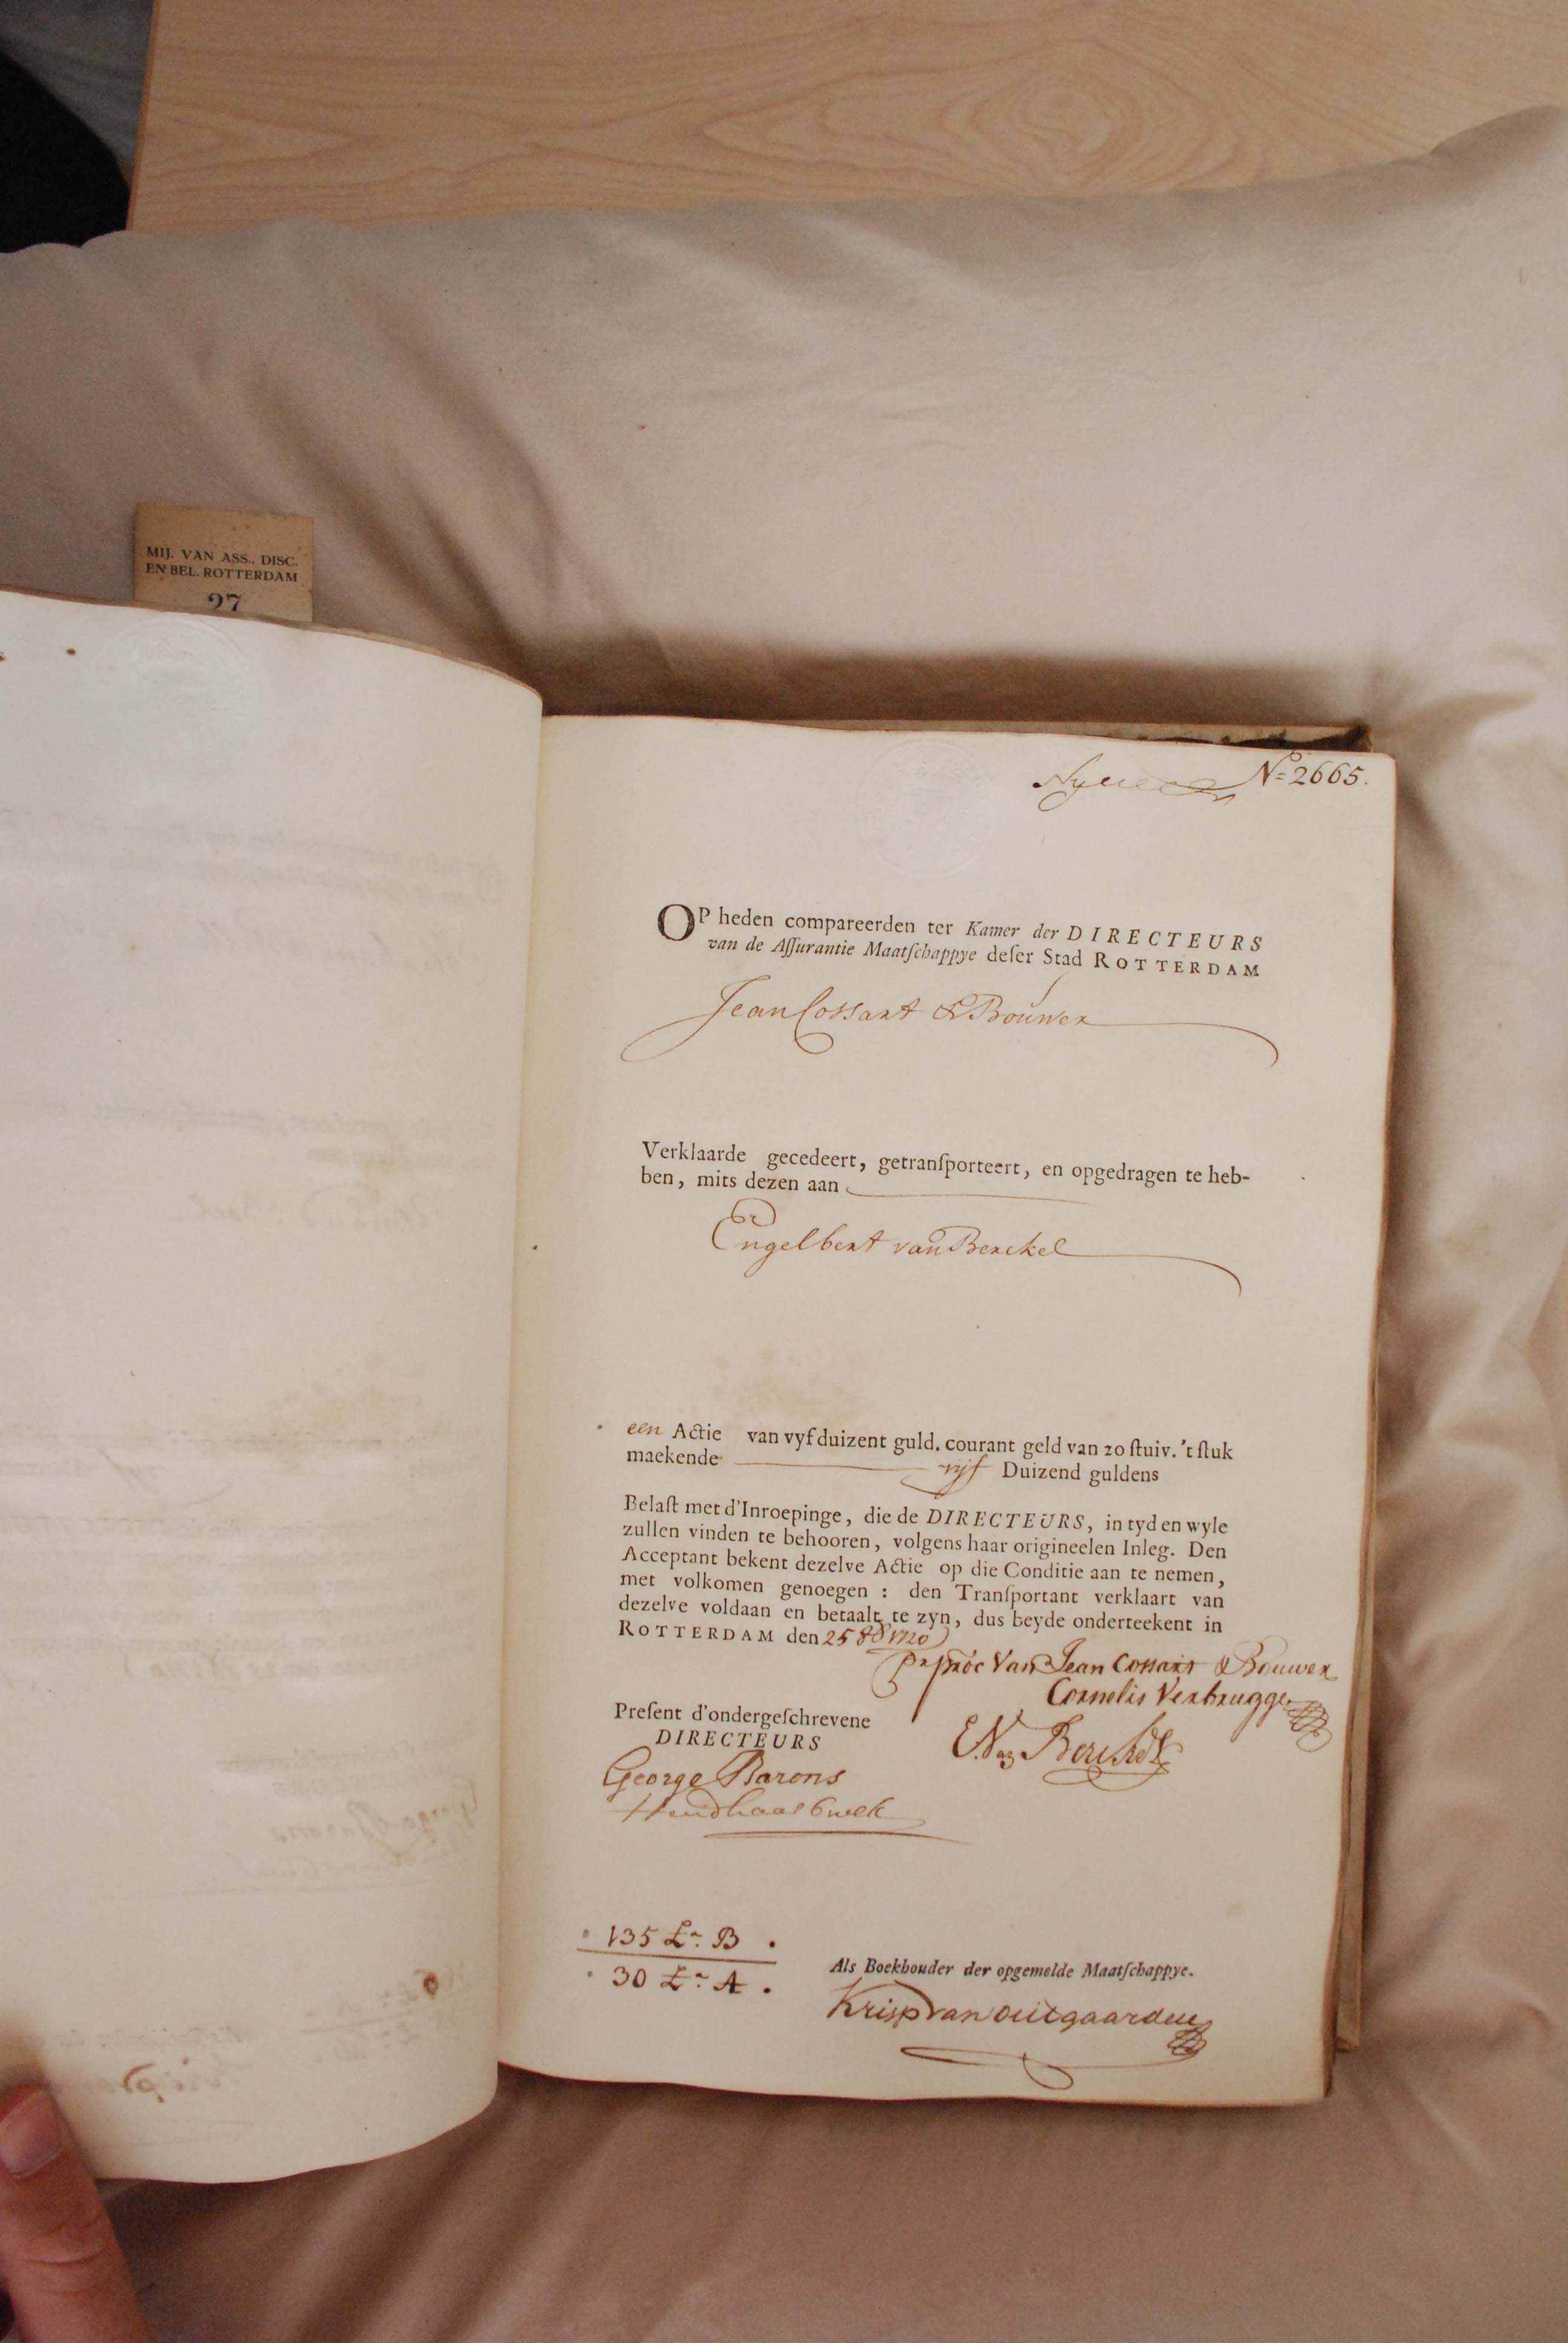 MIJ. VAN ASS., DISC.
EN BEL. ROTTERDAM
27
No 2665.
OP heden compareerden ter Kamer der DIRECTEURS
van de Aſſurantie Maatſchappye deſer Stad ROTTERDAM
Jean Cossart & Bouwer
Verklaarde gecedeert, getranſporteert, en opgedragen te heb-
ben, mits dezen aan
Engelbert van Berckel
een Actie van vyf duizent guld. courant geld van 20 ſtuiv. 't ſtuk
maekende vijf Duizend guldens
Belaſt met d'Inroepinge, die de DIRECTEURS, in tyd en wyle
zullen vinden te behooren, volgens haar origineelen Inleg. Den
Acceptant bekent dezelve Actie op die Conditie aan te nemen,
met volkomen genoegen : den Tranſportant verklaart van
dezelve voldaan en betaalt te zyn, dus beyde onderteekent in
ROTTERDAM den 25 1720
pr proc Van Jean Cossart & Bouwer
Cornelis Verbrugge
Preſent d'ondergeſchrevene
DIRECTEURS
E V Berckel
George Barons
135 Lr: B.
30 Lr: A.
Als Boekhouder der opgemelde Maatſchappye.
Krisp van outgaarden